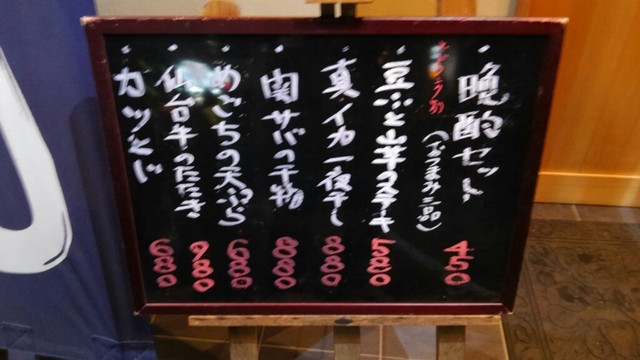 ・晩酌セット 450
(おつまみ二品)
・豆ふと山芋のステーキ 580
・真イカ一夜干し 880
・関サバの干物 880
・めごちの天ぷら 680
・仙台牛のたたき 980
・カツとじ 680